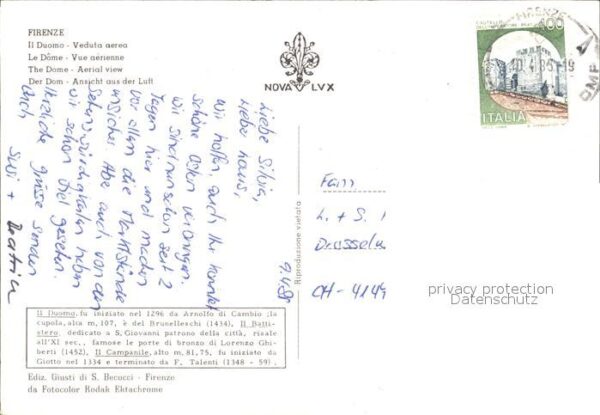 FIRENZE
Il Duomo - Veduta aerea
Le Dôme - Vue aérienne
The Dome - Aerial view
Der Dom - Ansicht aus der Luft
NOVA LVX
FIRENZE
CASTELLO
400
ITALIA
Liebe Silvia,
lieber Klaus,
Wir hoffen auch Ihr konntet
schöne Ostern verbringen.
Wir sind nun schon seit 2
Tagen hier und machen
vor allem die Marktstände
unsicher. Aber auch von den
Sehenswürdigkeiten haben
wir schon viel gesehen.
Herzliche Grüsse senden
Euch
Susi + Beatrice
Fam
L. + S.
CH - 4149
privacy protection
Datenschutz
Riproduzione vietata
Il Duomo, fu iniziato nel 1296 da Arnolfo di Cambio ;la
cupola, alta m, 107, è del Brunelleschi (1434), Il Batti-
stero, dedicato a S. Giovanni patrono della città, risale
all'XI sec,, famose le porte di bronzo di Lorenzo Ghi-
berti (1452), Il Campanile, alto m, 81,75, fu iniziato da
Giotto nel 1334 e terminato da F. Talenti (1348 - 59).
Ediz. Giusti di S. Becocci - Firenze
da Fotocolor Kodak Ektachrome